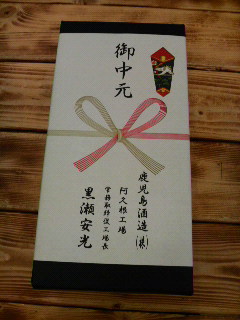 御中元
鹿児島酒造(株)
阿久根工場
常務取締役工場長
黒瀬安光